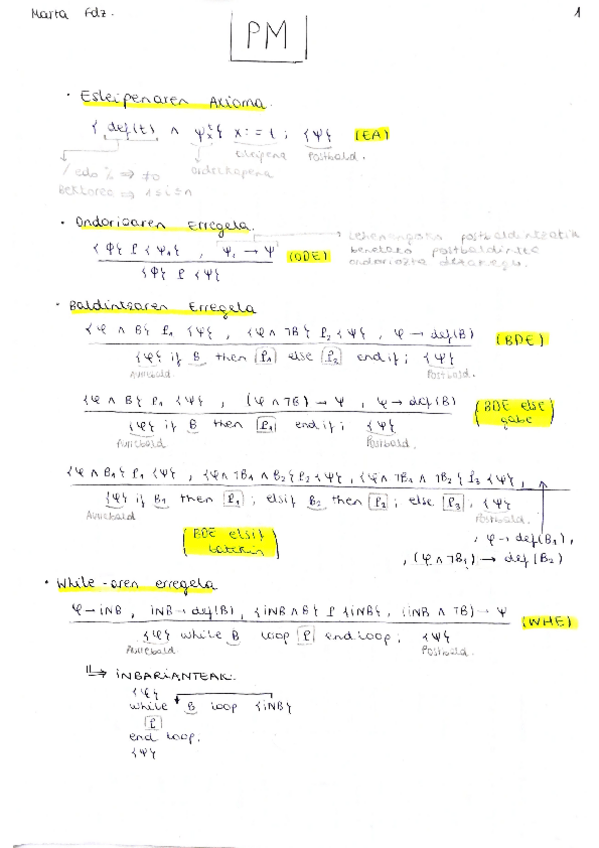 Marta Fdz. 1
PM
· Esleipenaren Axioma.
{ def(t) ∧ Ψₓᵗ } x := t ; {Ψ} (EA)
Esleipena Postbald.
/ edo % ⇒ ≠0 Ordezkapena
Bektorea ⇒ 1≤i≤n
· Ondorioaren Erregela.
{Φ} P {Ψ₁} , Ψ₁ → Ψ (ODE)
{Φ} P {Ψ}
Lehenengoko postbaldintzatik
benetako postbaldintza
ondorioztatu dezakegu.
· Baldintzaren Erregela
{φ ∧ B} P₁ {Ψ} , {φ ∧ ¬B} P₂ {Ψ} , φ → def(B) (BDE)
{φ} if B then P₁ else P₂ end if ; {Ψ}
Aurrebald. Postbald.
{φ ∧ B} P₁ {Ψ} , (φ ∧ ¬B) → Ψ , φ → def(B) (BDE else gabe)
{φ} if B then P₁ end if ; {Ψ}
Aurrebald Postbald.
{φ ∧ B₁} P₁ {Ψ} , {φ ∧ ¬B₁ ∧ B₂} P₂ {Ψ} , {φ ∧ ¬B₁ ∧ ¬B₂} P₃ {Ψ} ,
{φ} if B₁ then P₁ ; elsif B₂ then P₂ ; else P₃ ; {Ψ}
Aurrebald Postbald.
(BDE elsif batekin) , φ → def(B₁) ,
, (φ ∧ ¬B₁) → def(B₂)
· While-aren erregela
φ → INB , INB → def(B) , {INB ∧ B} P {INB} , (INB ∧ ¬B) → Ψ (WHE)
{φ} while B loop P end loop ; {Ψ}
Aurrebald Postbald.
⇒ INBARIANTEAK.
{φ}
while B loop {INB}
P
end loop.
{Ψ}